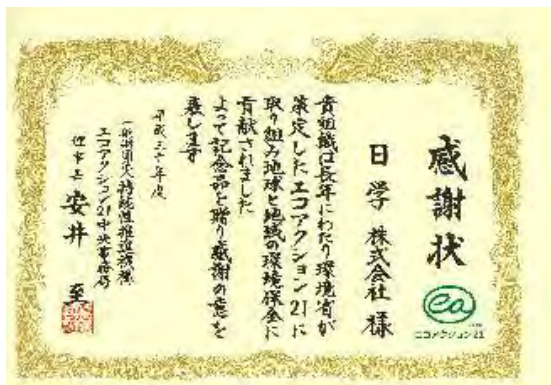 感謝状
エコアクション21
日学 株式会社 様
貴組織は長年にわたり環境省が
策定したエコアクション21に
取り組み地球と地域の環境保全に
貢献されました
よって記念品を贈り感謝の意を
表します
平成三十年度
一般財団法人 持続性推進機構
エコアクション21中央事務局
理事長 安井 至